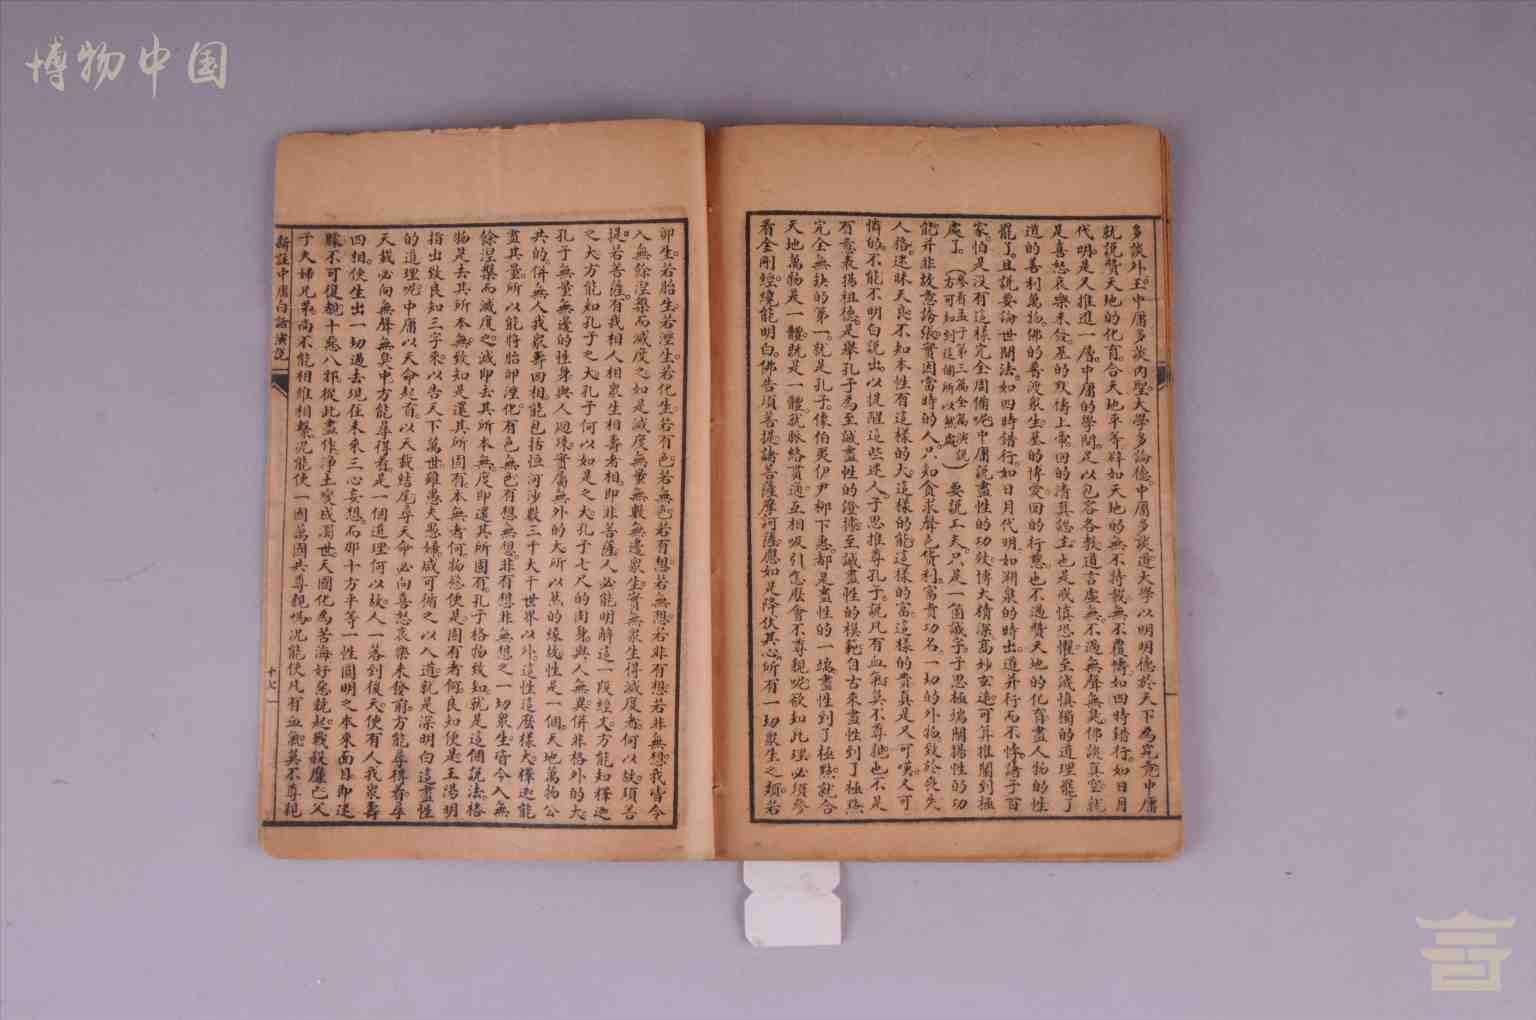 博物中国
多談外王。中庸多談內聖。大學多論德。中庸多談道。大學以明明德於天下為究竟。中庸
就說贊天地的化育。合天地平等。辟如天地的無不持載。無不覆幬。如四時錯行。如日月
代明。是又推進一層。中庸的學問。足以包容各教道言虛無。不過無聲無臭。佛談真空。就
是喜怒哀樂未發。基的默禱上帝。回的清真認主。也是戒慎恐懼。至誠慎獨的道理罷了。
道的善利萬物。佛的普渡衆生。基的博愛。回的行慈。也不過贊天地的化育。盡人物的性
罷了。且說要論世間法。如四時錯行。如日月代明。如淵泉的時出。道并行而不悖。諸子百
家。怕是沒有這樣完全周備呢。中庸說盡性的功效。博大精深。高妙玄遠。可算推闡到極
處了。（參看孟子第三篇全篇演說方可知到這個所以然處）要說工夫。只是一個誠字。子思極端闡揚性的功
能。并非故意誇張。實因當時的人。只知貪求聲色貨利。富貴功名。一切的外物。致於喪失
人格。迷昧天良。不知本性有這樣的大。這樣的能。這樣的富。這樣的貴。真是又可嘆。又可
憐的。不能不明白說出。以提醒這些迷人。子思推尊孔子。說凡有血氣。莫不尊親。也不是
有意表揚祖德。是舉孔子為至誠盡性的證據。至誠盡性的模範。自古來盡性到了極點。
完全無缺的第一。就是孔子。像伯夷伊尹柳下惠。都是盡性的一端。盡性到了極點。就合
天地萬物是一體。既是一體。就脈絡貫通。互相吸引。怎麼會不尊親呢。欲知此理。必須參
看金剛經。纔能明白。佛告須菩提。諸菩薩摩訶薩。應如是降伏其心。所有一切眾生之類。若
卵生。若胎生。若溼生。若化生。若有色。若無色。若有想。若無想。若非有想。若非無想。我皆令
入無餘涅槃而滅度之。如是滅度無量無數無邊衆生。實無衆生得滅度者。何以故。須菩
提。若菩薩。有我相人相衆生相壽者相。即非菩薩。人必能明解這一段經文。方能知釋迦
之大。方能知孔子之大。孔子何以如是之大。孔子七尺的肉身。與人無異。併非格外的大。
孔子無量無邊的性身。與人迥殊。實屬無外的大。所以然的緣故。性是一個。天地萬物公
共的。併無人我衆壽四相。能包括恒河沙數三千大千世界以外。這性這麼樣大。釋迦能
盡其量。所以能將胎卵溼化。有色無色。有想無想。非有想非無想之一切衆生。皆令入無
餘涅槃而滅度之。滅即去其所本無。度即還其所固有。孔子格物致知。就是這個說法。格
物是去其所本無。致知是還其所固有。本無者何。物慾便是。固有者何。良知便是。王陽明
指出致良知三字來。以告天下萬世。雖愚夫愚婦。咸可循之以入道。就是深明白這盡性
的道理呢。中庸以天命起首。以天載結尾。尋天命必向喜怒哀樂未發前。方能尋得着。尋
天載必向無聲無臭中。方能尋得着。是一個道理。何以故。人一落到後天。便有人我衆壽
四相。便生出一切過去現在未來三心妄想。而那十方平等一性圓明之本來面目。即迷
矇不可復覩。十惡八邪。從此盡作。淨土變成濁世。天國化為苦海。好惡競起。戰殺靡已。父
子夫婦兄弟。尚不能相維相繫。況能使一國萬國共尊親嗎。況能使凡有血氣。莫不尊親
新註中庸白話演說
十七